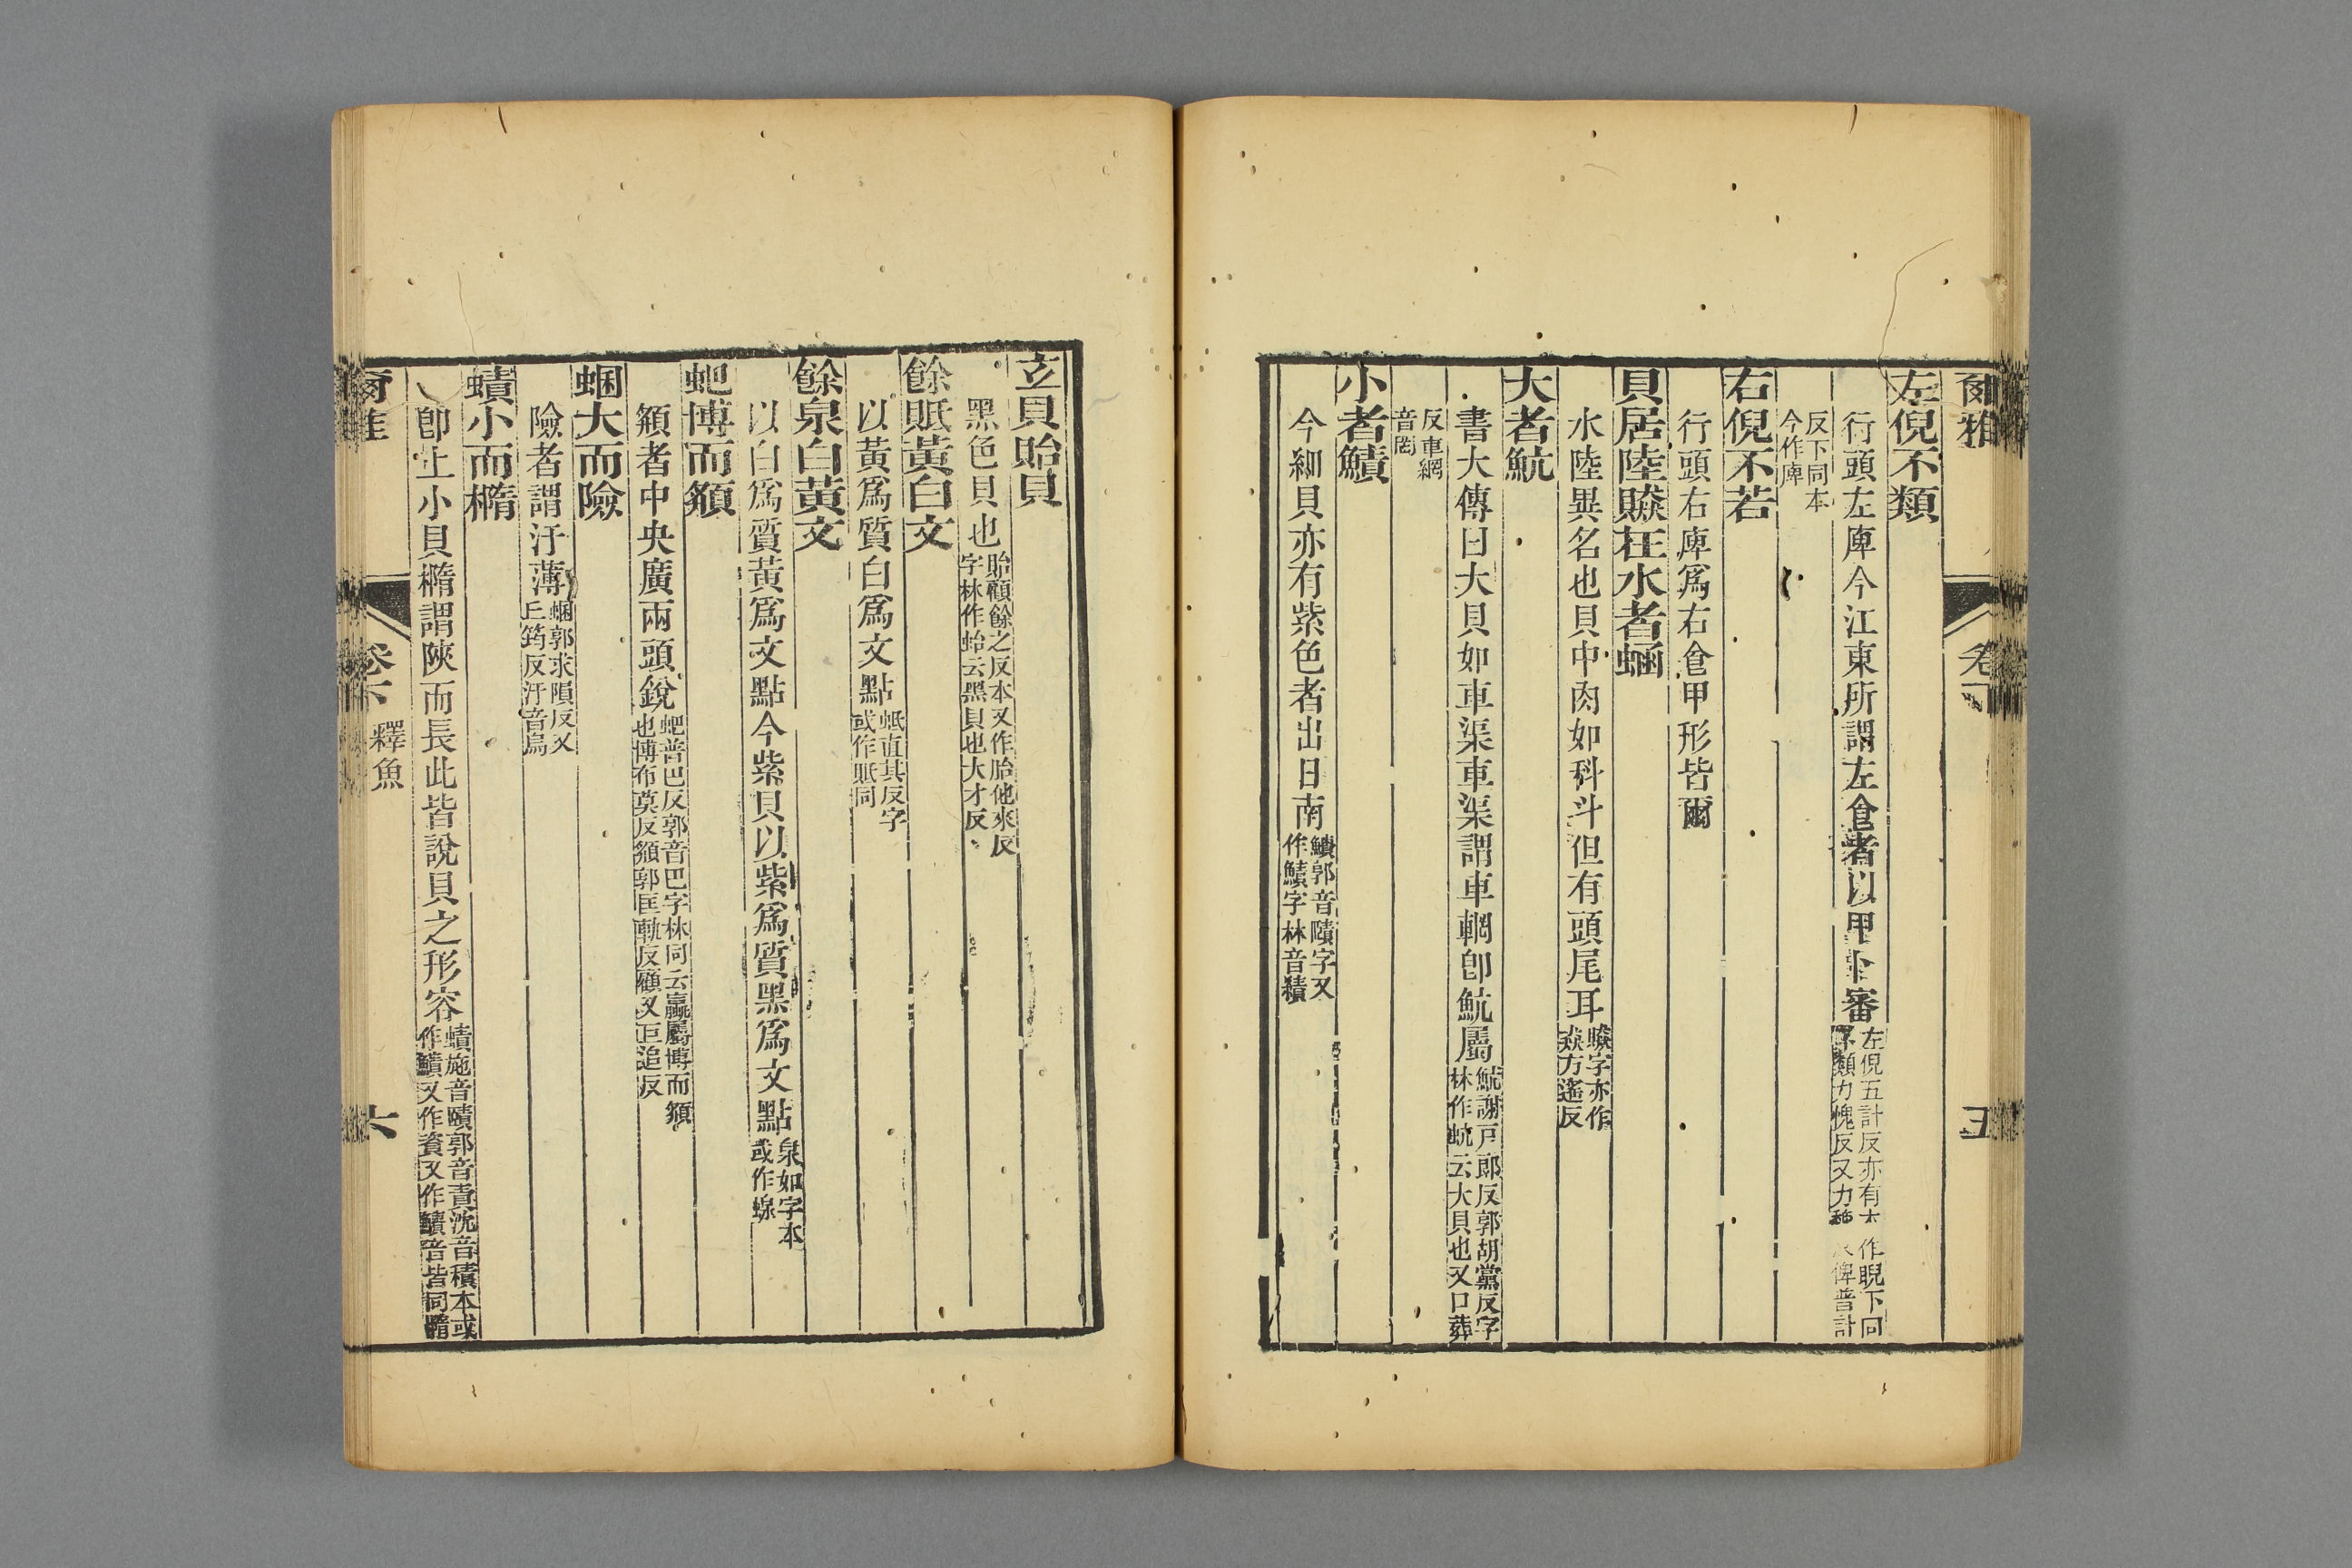 爾雅 卷下 五
左倪不類
行頭左庳今江東所謂左食者以甲卜審左倪五計反亦有本作睨下同不類力愧反又力
俾普計
反下同本今作庳
右倪不若
行頭右庳爲右食甲形皆爾
貝居陸贆在水者蜬
水陸異名也貝中肉如科斗但有頭尾耳贆字亦作猋方遙反
大者魧
書大傳曰大貝如車渠車渠謂車輞卽魧屬魧謝戸郎反郭胡黨反字林作蚢云大貝也又口葬
反車網音罔
小者鰿
今細貝亦有紫色者出日南鰿郭音賾字又作鰿字林音積
玄貝貽貝
黑色貝也貽顧餘之反本又作胎他來反字林作蛤云黑貝也大才反
餘貾黃白文
以黃爲質白爲文點蚳直其反字或作貾同
餘泉白黃文
以白爲質黃爲文點今紫貝以紫爲質黑爲文點泉如字本或作螈
蚆博而頯
頯者中央廣兩頭銳蚆普巴反郭音巴字林同云蠃屬博而頯也博布莫反頯郭匡軌反顧又巨追反
蜠大而險
險者謂汙薄蜠郭求隕反又丘筠反汙音烏
蟦小而橢
卽上小貝橢謂陜而長此皆說貝之形容蟦施音賾郭音責沈音積本或作鰿又作賷又作鰿音皆同橢
爾雅 卷下 釋魚 六